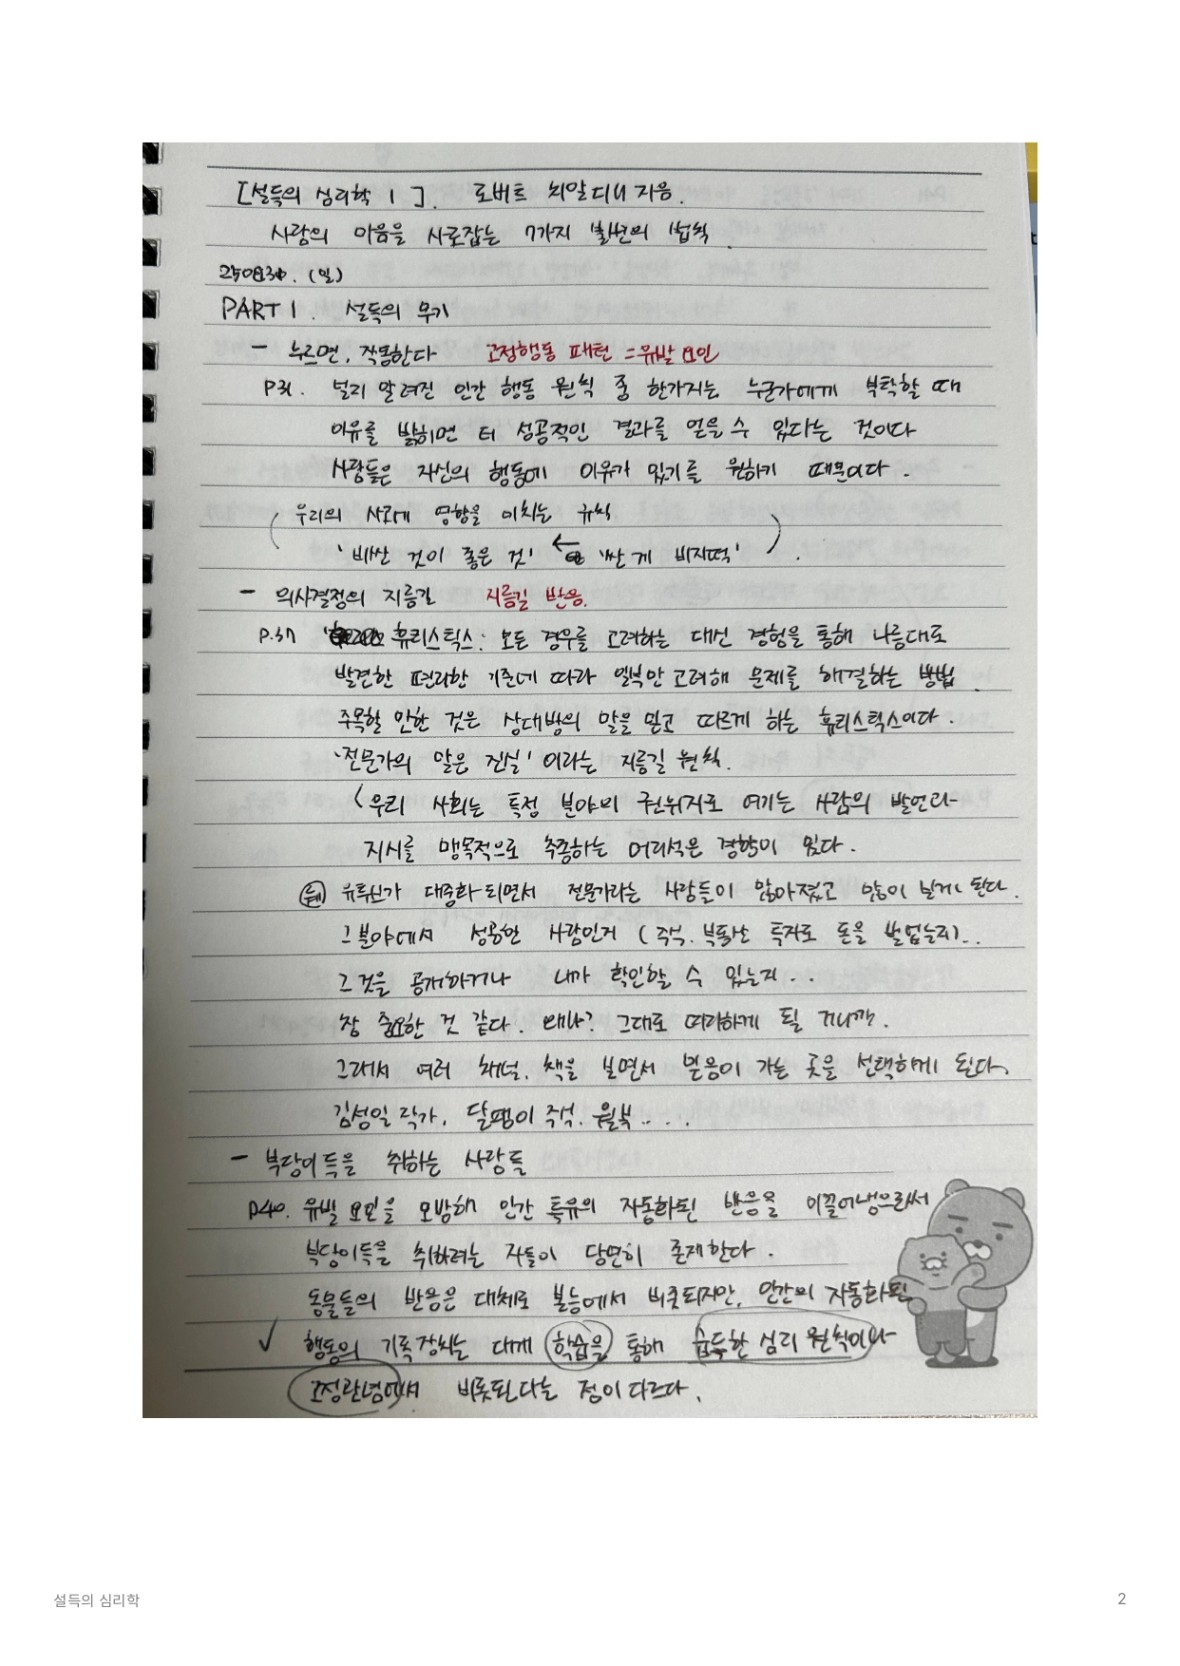 [설득의 심리학 1]. 로버트 치알디니 지음.
사람의 마음을 사로잡는 7가지 불변의 법칙.
250831.(일)
PART 1. 설득의 무기
- 누르면, 작동한다 고정행동 패턴 = 유발 요인
P31. 널리 알려진 인간 행동 원칙 중 한가지는 누군가에게 부탁할 때
이유를 밝히면 더 성공적인 결과를 얻을 수 있다는 것이다
사람들은 자신의 행동에 이유가 있기를 원하기 때문이다.
( 우리의 사고에 영향을 미치는 규칙
'비싼 것이 좋은 것' ← '싼 게 비지떡' ).
- 의사결정의 지름길 지름길 반응.
P.37 휴리스틱스: 모든 경우를 고려하는 대신 경험을 통해 나름대로
발견한 편리한 기준에 따라 일부만 고려해 문제를 해결하는 방법.
주목할 만한 것은 상대방의 말을 믿고 따르게 하는 휴리스틱스이다.
'전문가의 말은 진실' 이라는 지름길 원칙.
(우리 사회는 특정 분야의 권위자로 여기는 사람의 발언과
지시를 맹목적으로 추종하는 어리석은 경향이 있다.
유튜브가 대중화 되면서 전문가라는 사람들이 많아졌고 많이 보게 된다.
그 분야에서 성공한 사람인지 (주식. 부동산 투자로 돈을 벌었는지)..
그것을 공개하거나 내가 확인할 수 있는지...
참 중요한 것 같다. 왜냐? 그대로 따라하게 될 거니까.
그래서 여러 채널, 책을 보면서 믿음이 가는 곳을 선택하게 된다.
김성일 작가, 달팽이 주식. 월북....
- 부당이득을 취하는 사람들
P40. 유발 요인을 모방해 인간 특유의 자동화된 반응을 이끌어냄으로써
부당이득을 취하려는 자들이 당연히 존재한다.
동물들의 반응은 대체로 본능에서 비롯되지만, 인간의 자동화된
✓ 행동의 기록장치는 대게 학습을 통해 습득한 심리 원칙이나
고정관념에서 비롯된다는 점이 다르다.
설득의 심리학
2